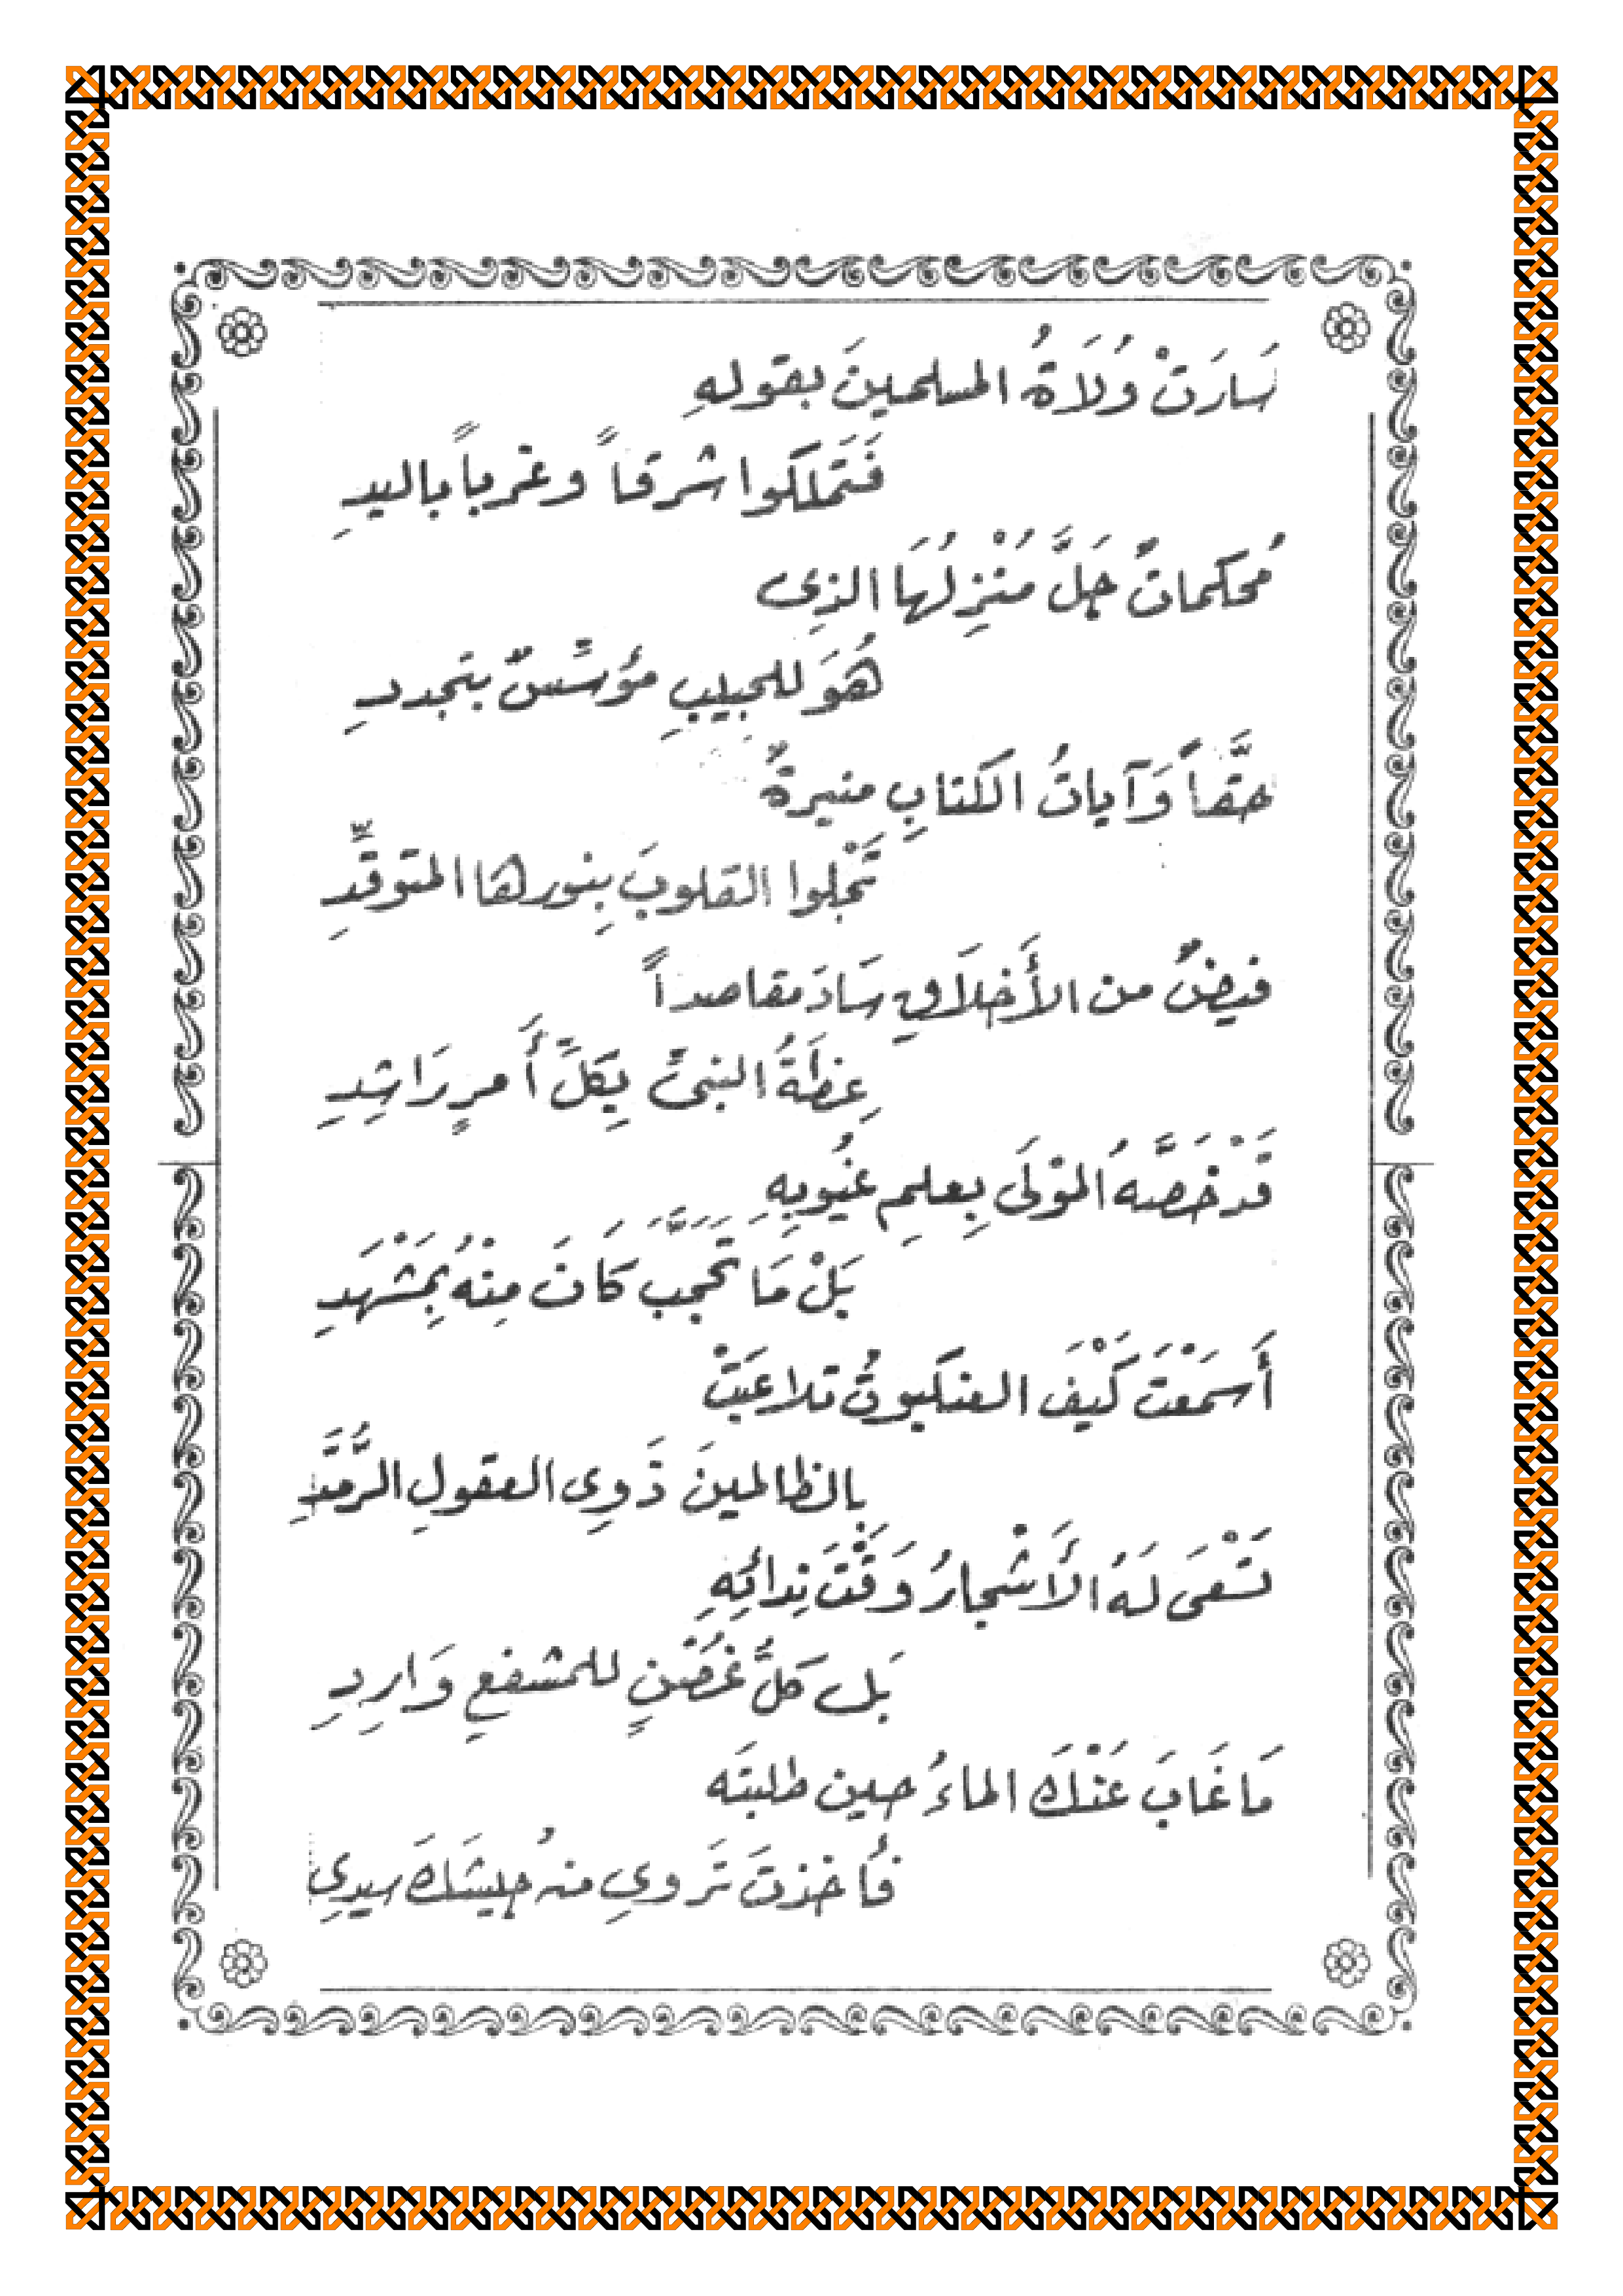 سَارَتْ وُلَاةُ المسلمينَ بقولهِ
فَتَملكوا شرقاً وغرباً باليدِ
مُحكماتٌ جَلَّ مُنْزِلُهَا الذِى
هُوَ للحبيبِ مؤسُسٌ بتجددِ
حقَّاً وَآياتُ الكتابِ منيرةٌ
تَجْلوا القلوبَ بِنورها المتوقِّدِ
فيضٌ من الأَخلَاقِ سَادَ مقاصداً
عِظَةُ النبىِّ بِكلِّ أَمرٍ رَاشِدِ
قَدْ خَصَّهُ المَوْلَى بِعلمِ غيُوبِهِ
بَلْ مَا تَحَجَّبَ كَانَ مِنْهُ بِمَشْهَدِ
أَسَمَعْتَ كَيْفَ العنكبوتُ تلاعَبَتْ
بالظالمينَ ذَوِى العقولِ الرُّمَّدِ
تَسْعَى لَهُ الأَشْجارُ وَقْتَ نِدائِهِ
بَل كلُّ غُصْنٍ للمشفعِ وَارِدِ
مَا غَابَ عَنْكَ الماءُ حين طلبتَه
فأَخذتَ تَروِي منهُ جيشَكَ سيدِي